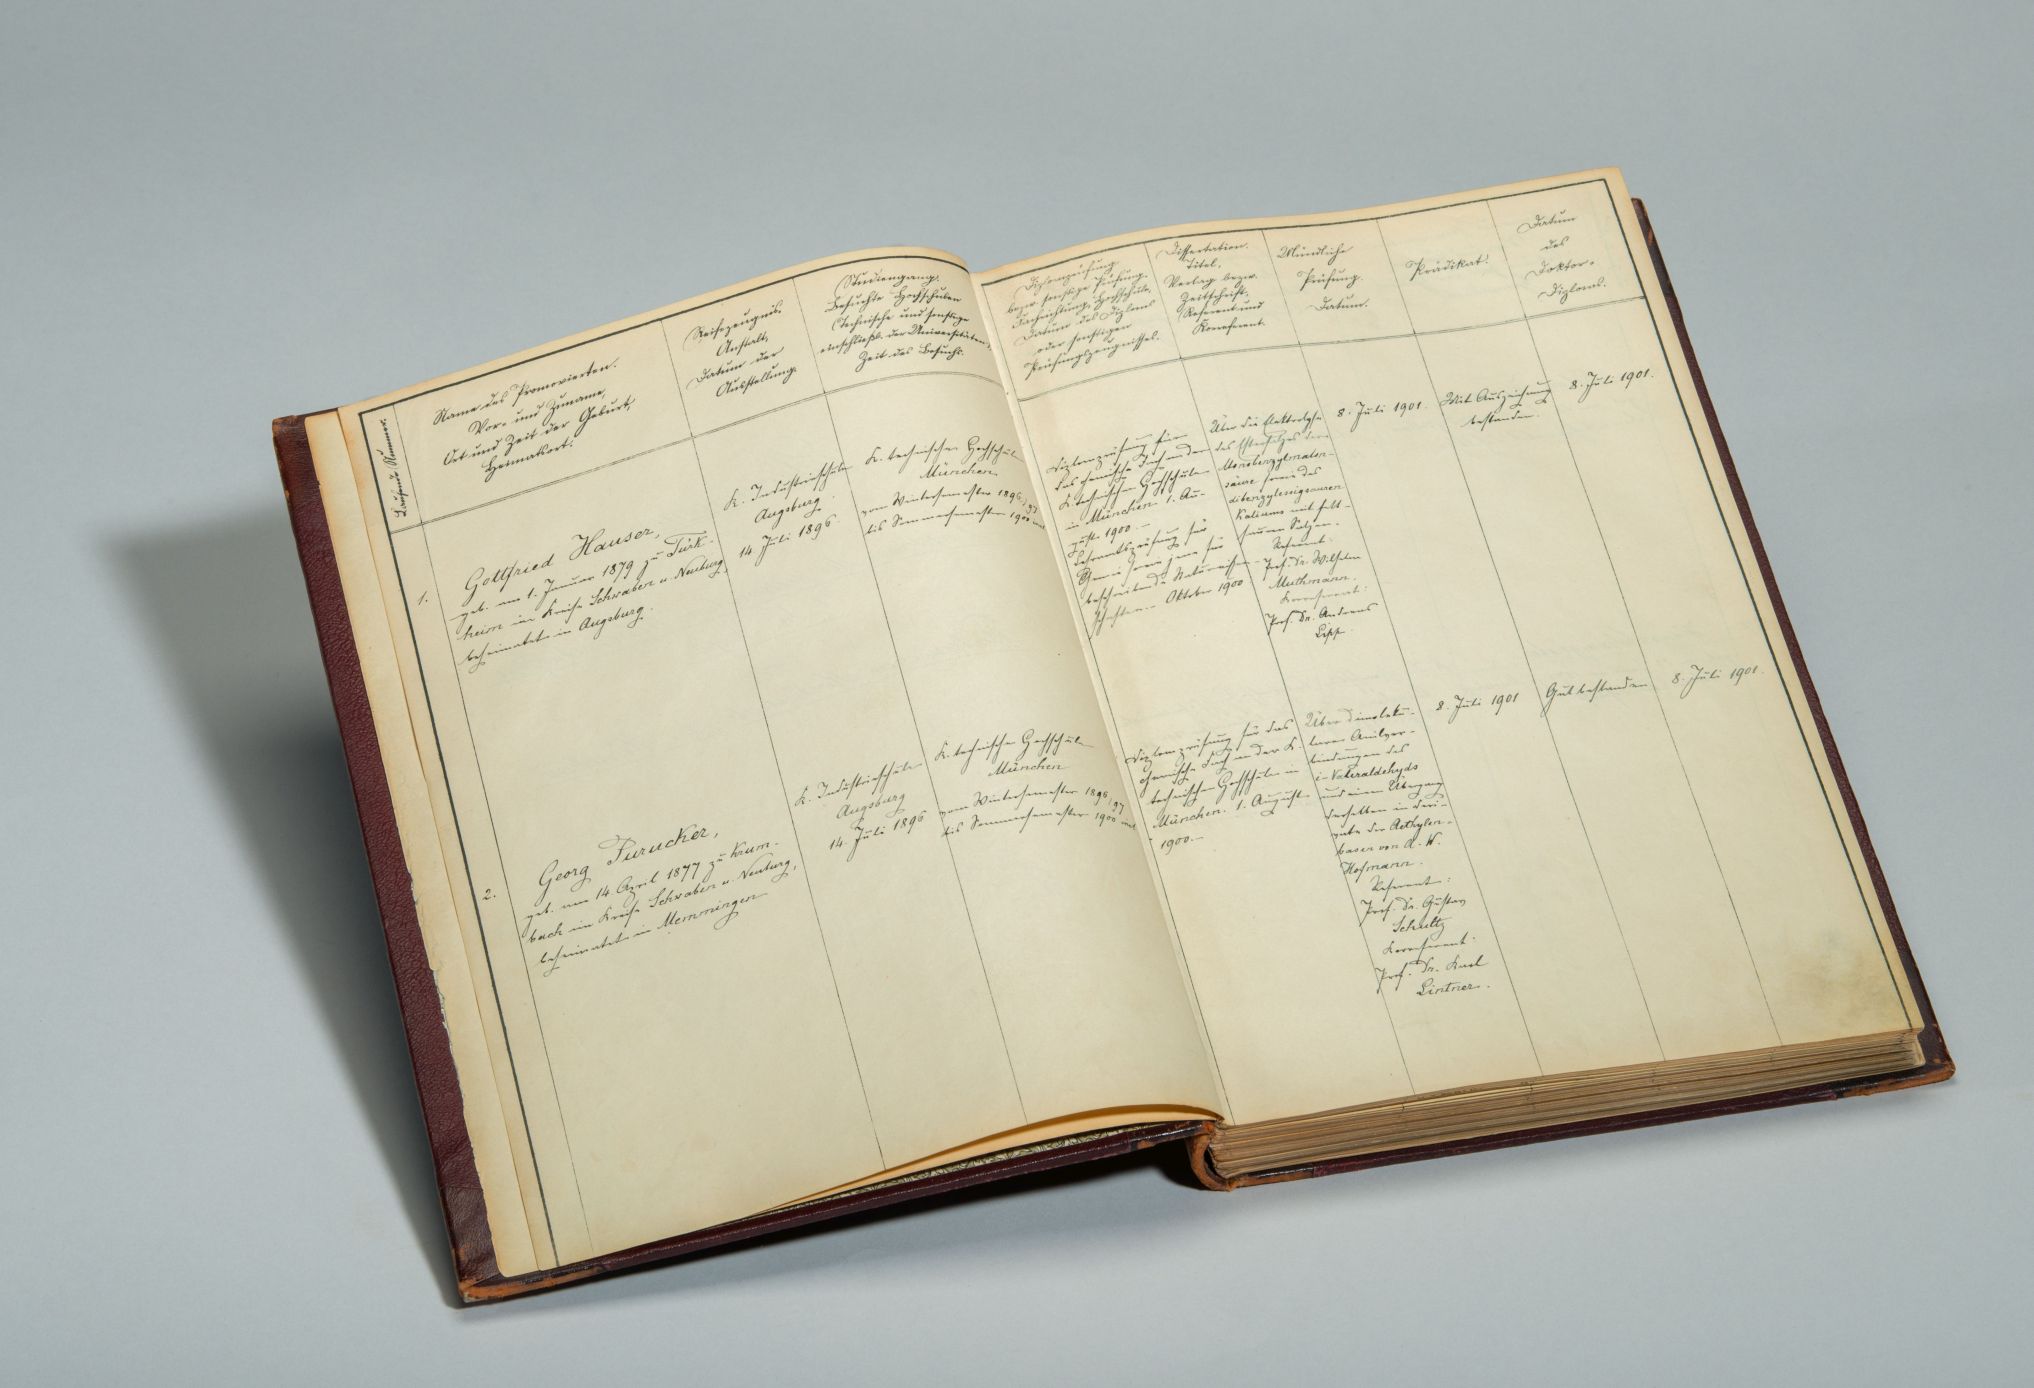 Laufende Nummer.
Name des Promovierten.
Vor- und Zuname,
Ort und Zeit der Geburt,
Heimatsort.
Reifezeugnis.
Anstalt,
Datum der
Ausstellung.
Studiengang.
Besuchte Hochschulen
(Technische und sonstige
einschließl. der Universitäten)
Zeit des Besuchs.
Diplomprüfung
bezw. sonstige Prüfung.
Fachrichtung, Hochschule,
Datum des Diploms
oder sonstigen
Prüfungszeugnisses.
Dissertation.
Titel,
Verlag bezw.
Zeitschrift.
Referent und
Korreferent.
Mündliche
Prüfung.
Datum.
Prädikat.
Datum
des
Doktor-
Diploms.
1.
Gottfried Hauser,
geb. am 1. Januar 1879 zu Türk-
heim im Kreise Schwaben u. Neuburg,
beheimatet in Augsburg.
K. Industrieschule
Augsburg
14. Juli 1896.
K. technische Hochschule
München
vom Wintersemester 1896/97
bis Sommersemester 1900 incl.
Diplomprüfung für
das chemische Fach an der
K. technischen Hochschule
in München 1. Au-
gust 1900.—
Lehramtsprüfung für
Chemie sowie jene für
beschreibende Naturwissen-
schaften — Oktober 1900
Über die Elektrolyse
des Estersalzes der
Monobenzylmalon-
säure sowie des
dibenzylessigsauren
Kaliums mit fett-
sauren Salzen.
Referent:
Prof. Dr. Wilhelm
Muthmann.
Korreferent:
Prof. Dr. Andreas
Lipp.
8. Juli 1901.
Mit Auszeichnung
bestanden.
8. Juli 1901.
2.
Georg Purucker,
geb. am 14. April 1877 zu Krum-
bach im Kreise Schwaben u. Neuburg,
beheimatet in Memmingen
K. Industrieschule
Augsburg
14. Juli 1896
K. technische Hochschule
München
vom Wintersemester 1896/97
bis Sommersemester 1900 incl.
Diplomprüfung für das
chemische Fach an der K.
technischen Hochschule in
München. 1. August
1900.—
Über dimoleku-
lare Anilver-
bindungen des
i-Valeraldehyds
und einen Übergang
derselben in Deri-
vate der Aethylen-
basen von A. W.
Hofmann.
Referent:
Prof. Dr. Gustav
Schultz
Korreferent:
Prof. Dr. Karl
Lintner.
8. Juli 1901
Gut bestanden
8. Juli 1901.